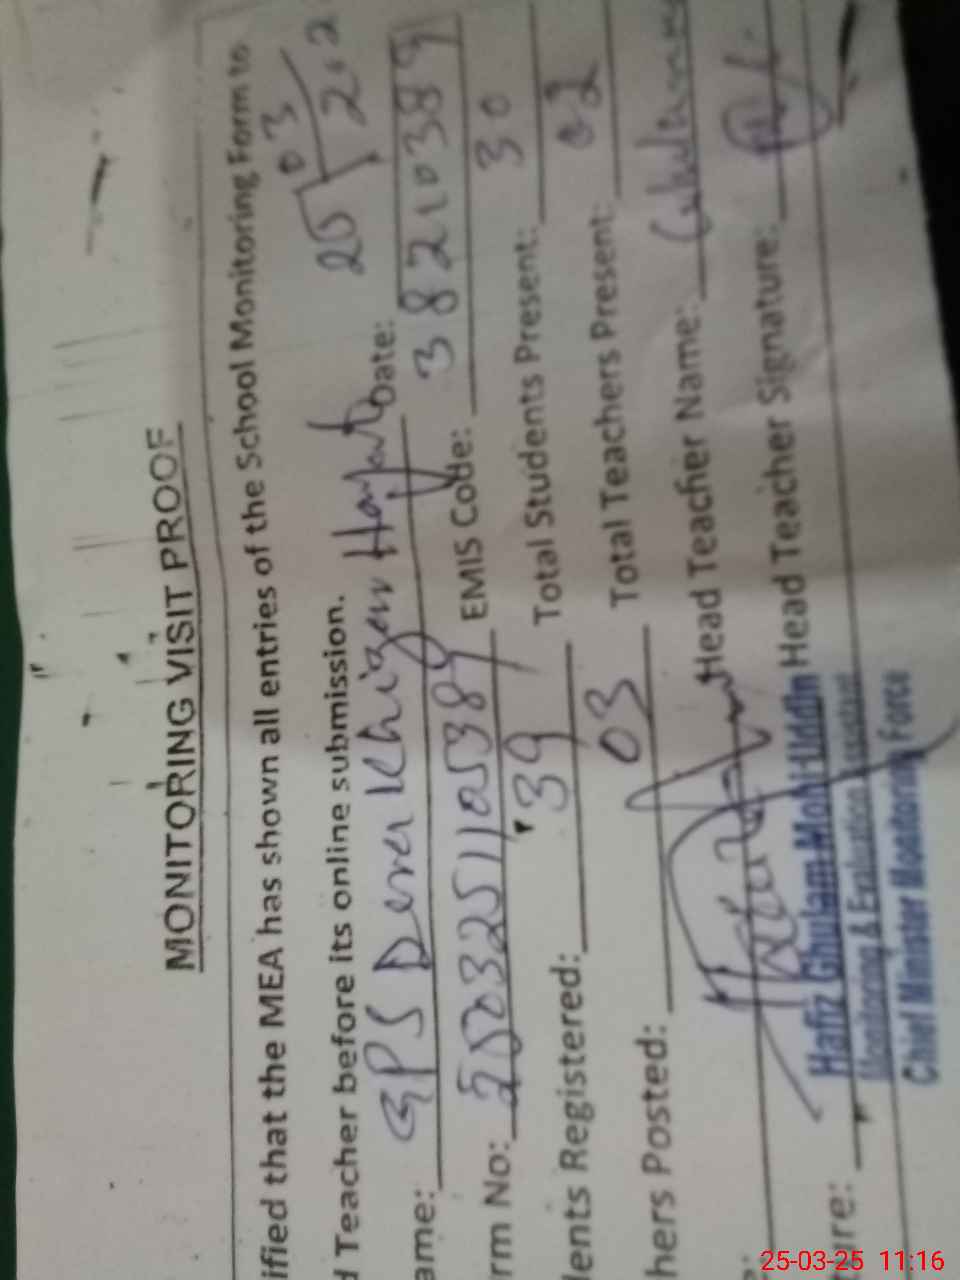 MONITORING VISIT PROOF
ified that the MEA has shown all entries of the School Monitoring Form to
d Teacher before its online submission.
ame: GPS Dera Khizar Hayat Date: 25/03/202
rm No: EMIS Code: 38210389
dents Registered: 39 Total Students Present: 30
hers Posted: 03 Total Teachers Present: 02
Head Teacher Name:
ure: Head Teacher Signature:
Hafiz Ghulam Mohi Uddin
Monitoring & Evaluation Assistant
Chief Minister Monitoring Force
25-03-25 11:16